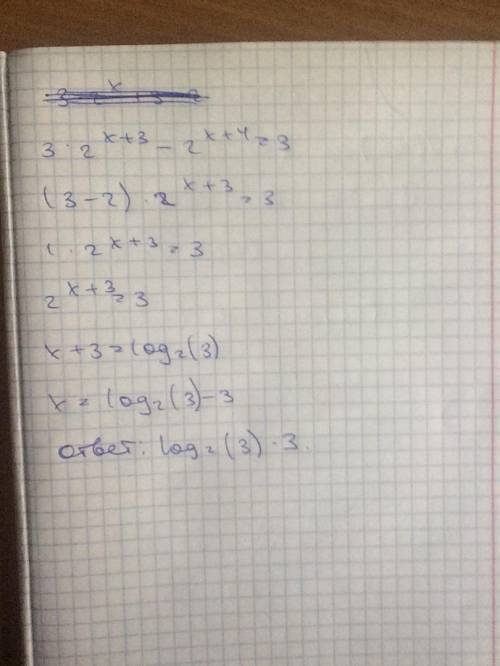 3 · 2^{x+3} - 2^{x+4} = 3
(3-2) · 2^{x+3} = 3
1 · 2^{x+3} = 3
2^{x+3} = 3
x+3 = log₂(3)
x = log₂(3) - 3
ответ: log₂(3) - 3.